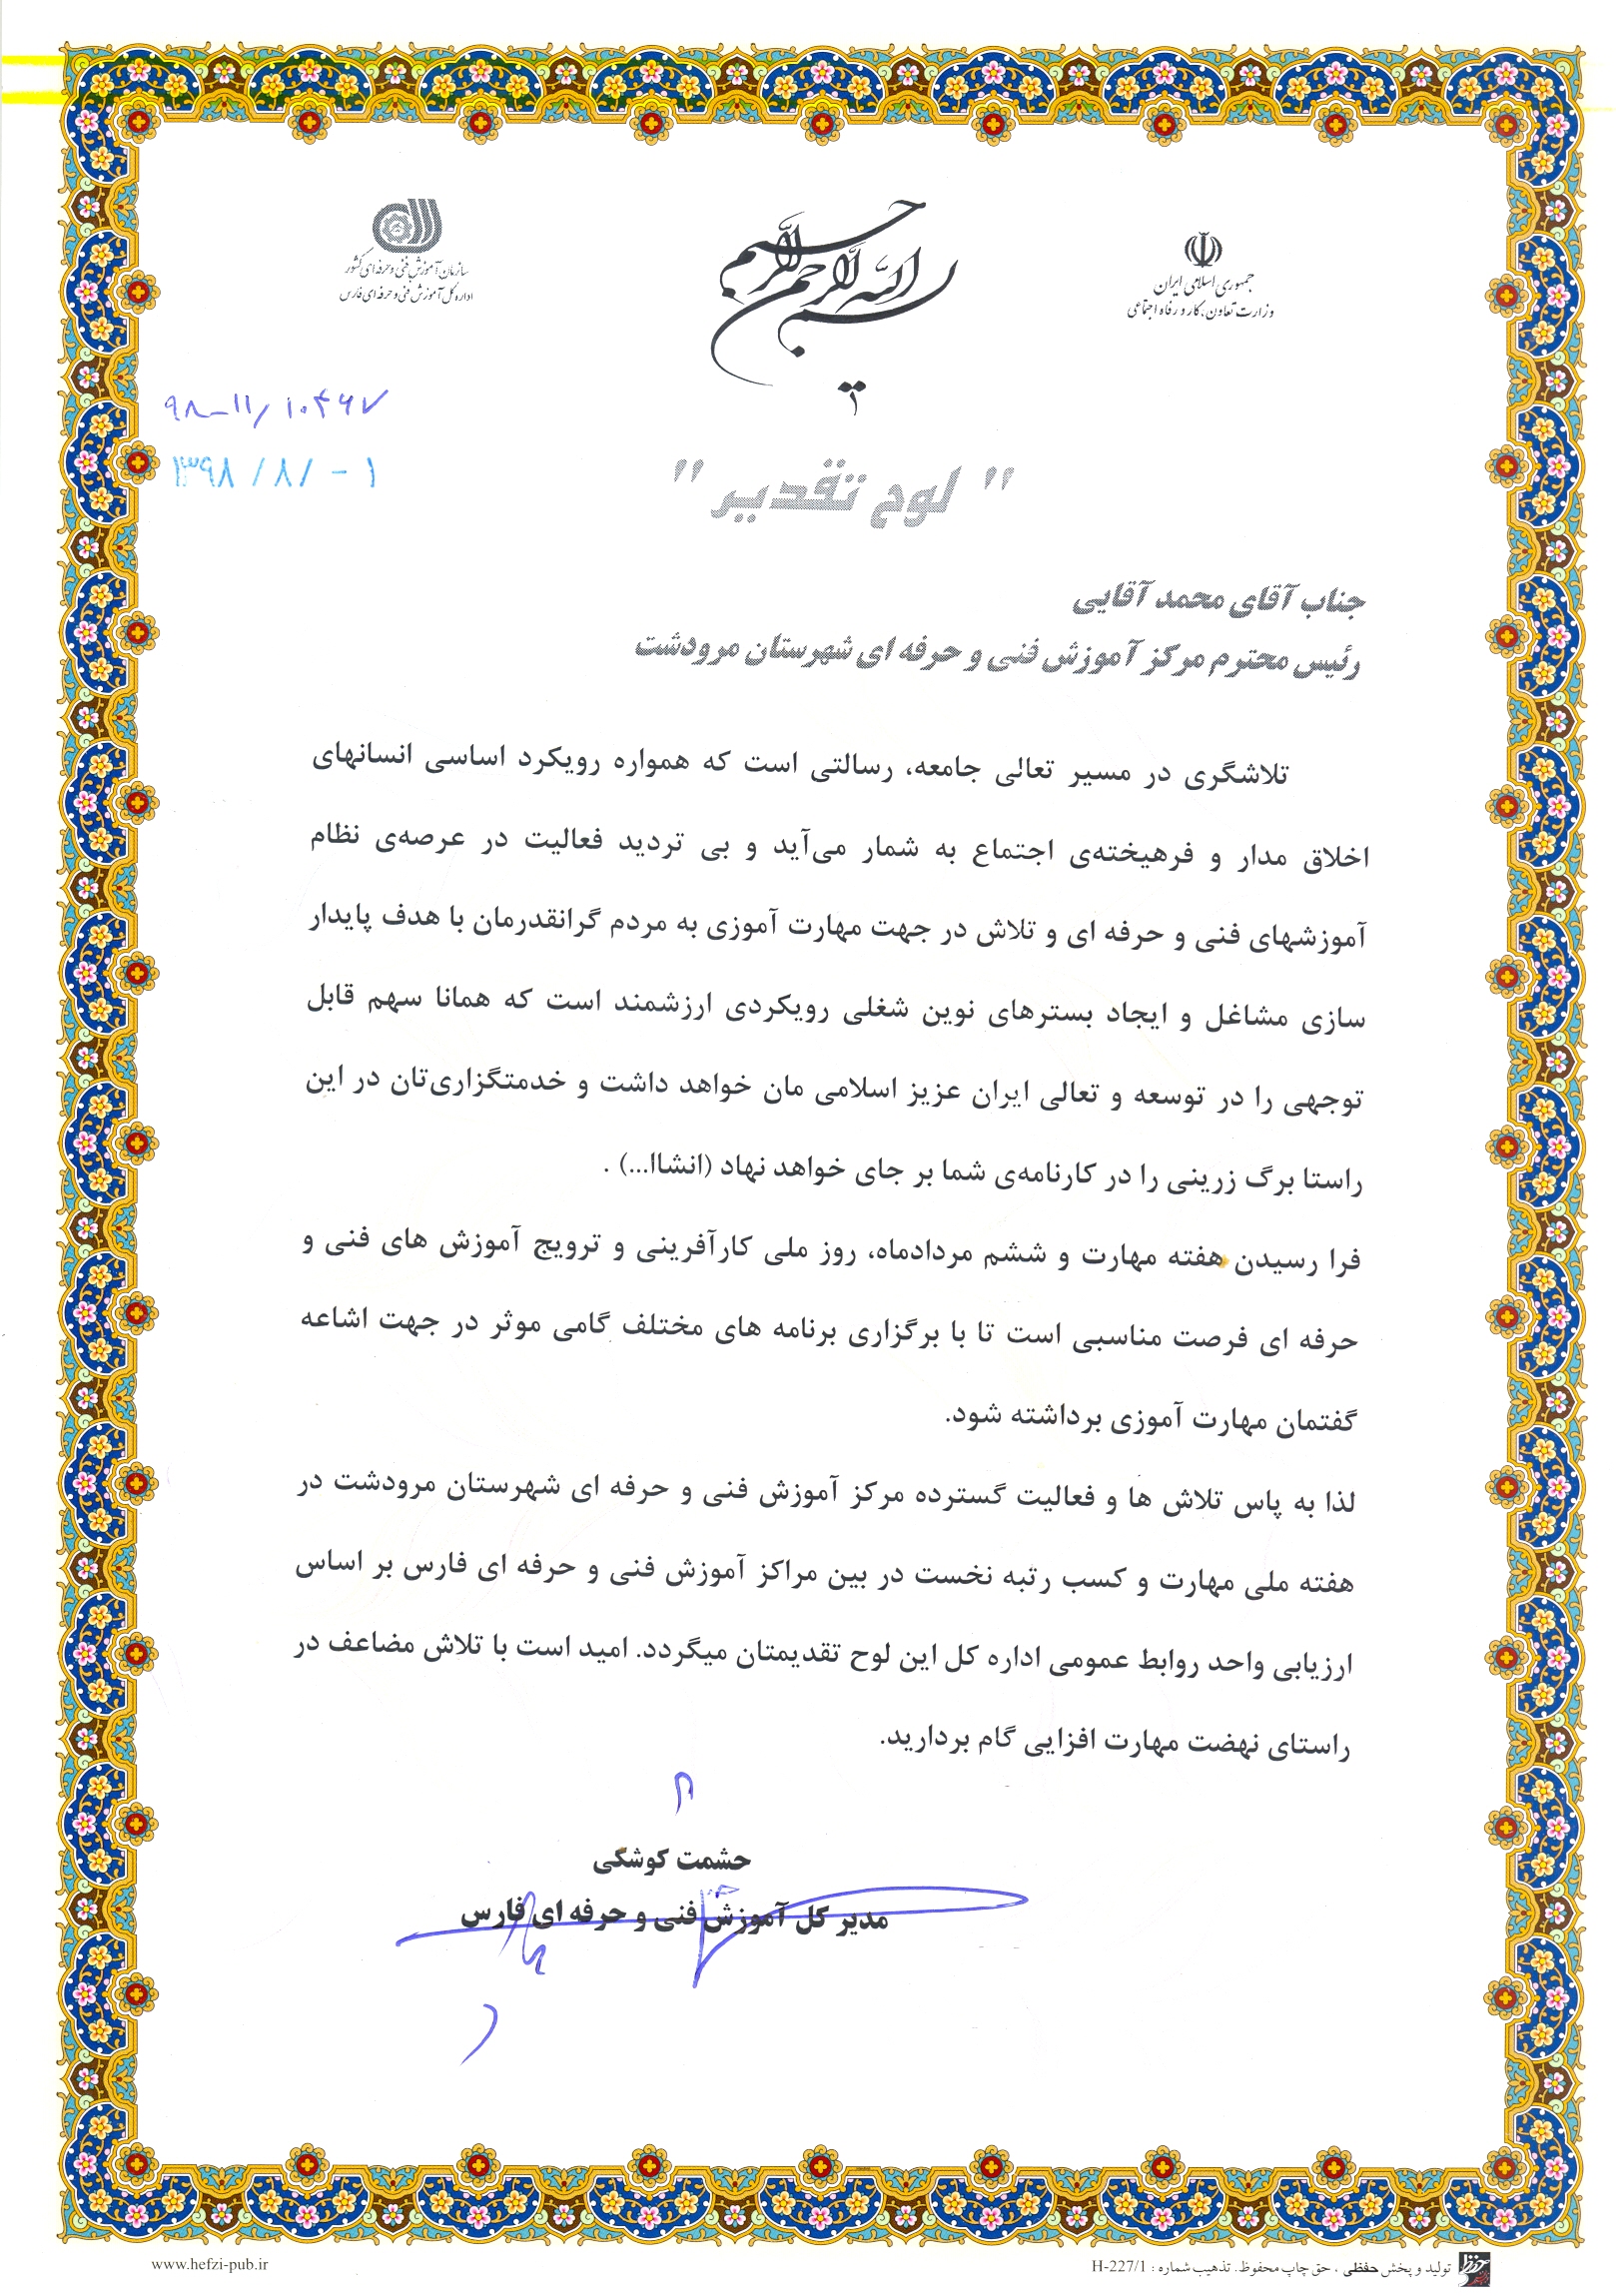 بسم الله الرحمن الرحیم
جمهوری اسلامی ایران
وزارت تعاون، کار و رفاه اجتماعی
سازمان آموزش فنی و حرفه ای کشور
اداره کل آموزش فنی و حرفه ای فارس
۹۸-۱۱/۱۰۴۶۷
۱۳۹۸/۸/-۱
" لوح تقدیر "
جناب آقای محمد آقایی
رئیس محترم مرکز آموزش فنی و حرفه ای شهرستان مرودشت
تلاشگری در مسیر تعالی جامعه، رسالتی است که همواره رویکرد اساسی انسانهای
اخلاق مدار و فرهیخته‌ی اجتماع به شمار می‌آید و بی تردید فعالیت در عرصه‌ی نظام
آموزشهای فنی و حرفه ای و تلاش در جهت مهارت آموزی به مردم گرانقدرمان با هدف پایدار
سازی مشاغل و ایجاد بسترهای نوین شغلی رویکردی ارزشمند است که همانا سهم قابل
توجهی را در توسعه و تعالی ایران عزیز اسلامی مان خواهد داشت و خدمتگزاری‌تان در این
راستا برگ زرینی را در کارنامه‌ی شما بر جای خواهد نهاد (انشاا...) .
فرا رسیدن هفته مهارت و ششم مردادماه، روز ملی کارآفرینی و ترویج آموزش های فنی و
حرفه ای فرصت مناسبی است تا با برگزاری برنامه های مختلف گامی موثر در جهت اشاعه
گفتمان مهارت آموزی برداشته شود.
لذا به پاس تلاش ها و فعالیت گسترده مرکز آموزش فنی و حرفه ای شهرستان مرودشت در
هفته ملی مهارت و کسب رتبه نخست در بین مراکز آموزش فنی و حرفه ای فارس بر اساس
ارزیابی واحد روابط عمومی اداره کل این لوح تقدیمتان میگردد. امید است با تلاش مضاعف در
راستای نهضت مهارت افزایی گام بردارید.
حشمت کوشکی
مدیر کل آموزش فنی و حرفه ای فارس
تولید و پخش حفظی ، حق چاپ محفوظ. تذهیب شماره : H-227/1
www.hefzi-pub.ir